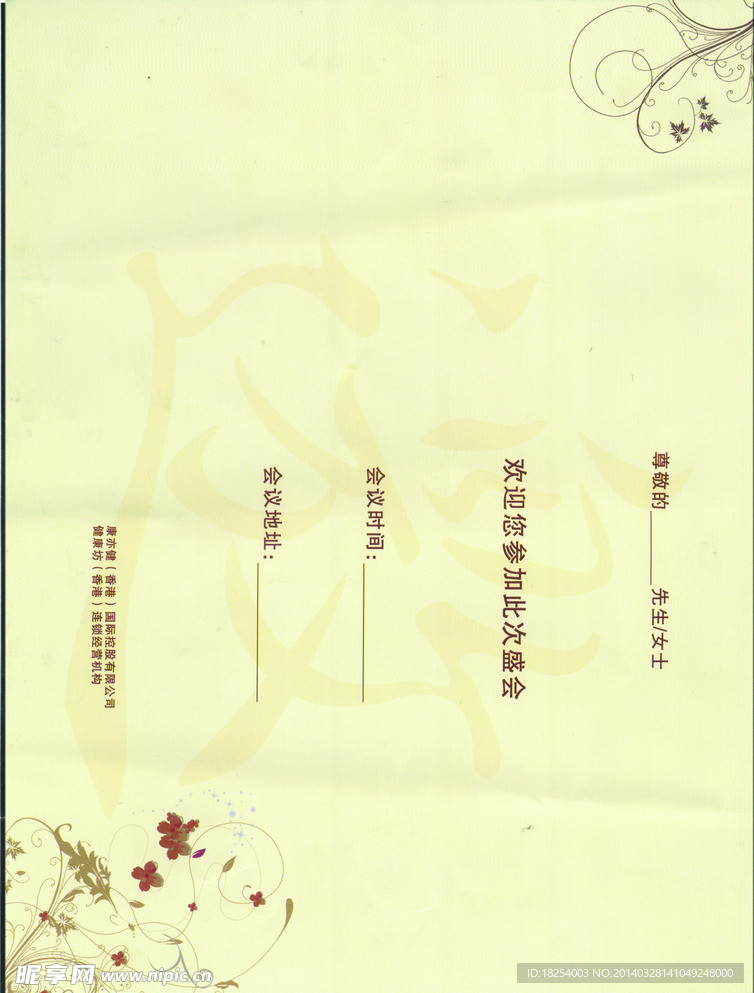 尊敬的______先生/女士
欢迎您参加此次盛会
会议时间：__________
会议地址：__________
康亦健（香港）国际控股有限公司
健康坊（香港）连锁经营机构
昵享网 www.nipic.cn
ID:18254003 NO:20140328141049248000